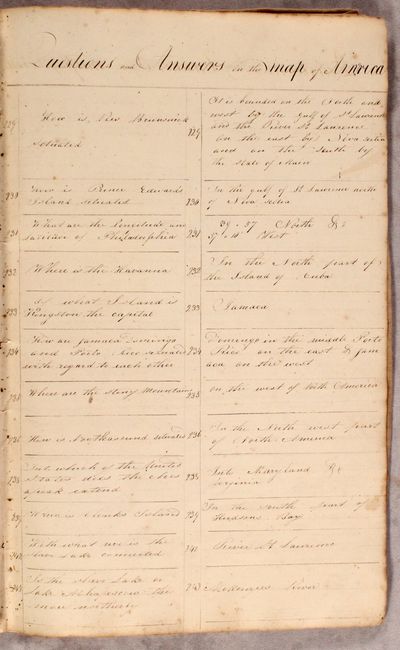 Questions and Answers on the map of America
729
How is New Brunswick
situated
729
It is bounded on the North and
west by the gulf of St Lawrence
and the River St Laurence
on the east by Nova scotia
and on the south by
the state of Main
730
How is Prince Edwards
Island situated
730
In the gulf of St Lawrence north
of Nova scotia
731
What are the Longitude and
of Philadelphia
731
39 . 57 North &
West
732
Where is the Havanna
732
In the North part of
the Island of Cuba
733
Of what Island is
Kingston the capital
733
Jamaica
734
How are Jamaica Domingo
and Porto Rico situated
with regard to each other
734
Domingo in the middle Porto
Rico on the east & Jam
aca on the west
735
Where are the stony Mountains
735
on the west of North America
736
How is situated
736
In the North west part
of North America
738
Into which of the United
States does the Ches
apeak extend
738
Into Maryland &
virginia
739
Where is Island
739
In the south part of
Hudsons Bay
741
With what sea is the
Slave Lake connected
741
Is the slave Lake or
Lake Athapescow the
more northerly
743
Mckenzies River